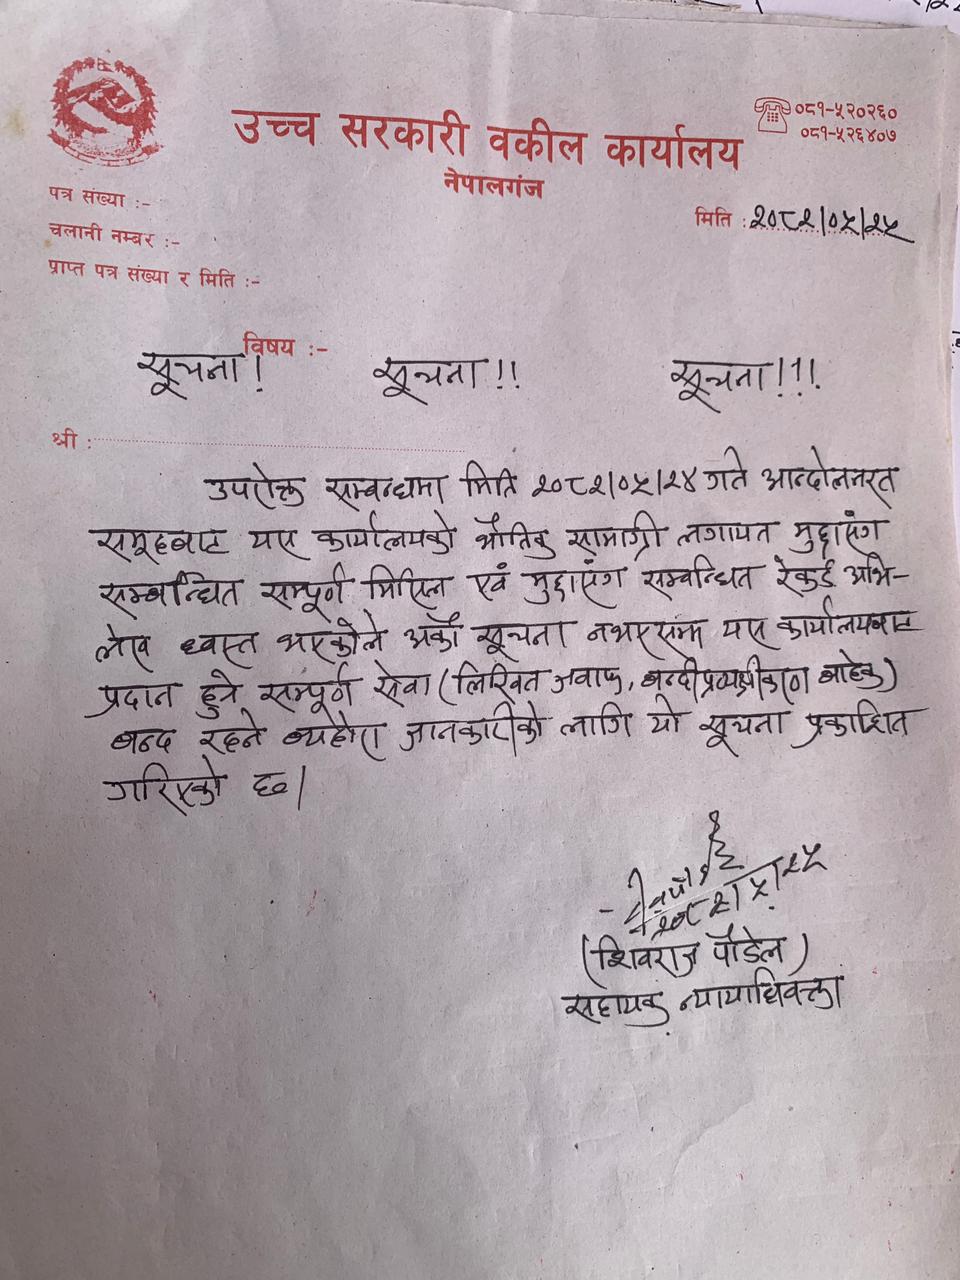 उच्च सरकारी वकील कार्यालय
नेपालगंज
०८१-५२०२६०
०८१-५२६४०७
पत्र संख्या :-
चलानी नम्बर :-
प्राप्त पत्र संख्या र मिति :-
मिति : २०८२/०५/२५
विषय :-
सूचना! सूचना!! सूचना!!!
श्री :
उपरोक्त सम्बन्धमा मिति २०८२/०५/२४ गते आन्दोलनरत
समूहबाट यस कार्यालयको भौतिक सामाग्री लगायत मुद्दासंग
सम्बन्धित सम्पूर्ण मिसिल एवं मुद्दासंग सम्बन्धित रेकर्ड अभि-
लेख ध्वस्त भएकोले अर्को सूचना नभएसम्म यस कार्यालयबाट
प्रदान हुने सम्पूर्ण सेवा (लिखित जवाफ, बन्दीप्रत्यक्षीकरण बाहेक)
बन्द रहने ब्यहोरा जानकारीको लागि यो सूचना प्रकाशित
गरिएको छ।
२०८२/५/२५
(शिवराज पौडेल)
सहायक न्यायाधिवक्ता